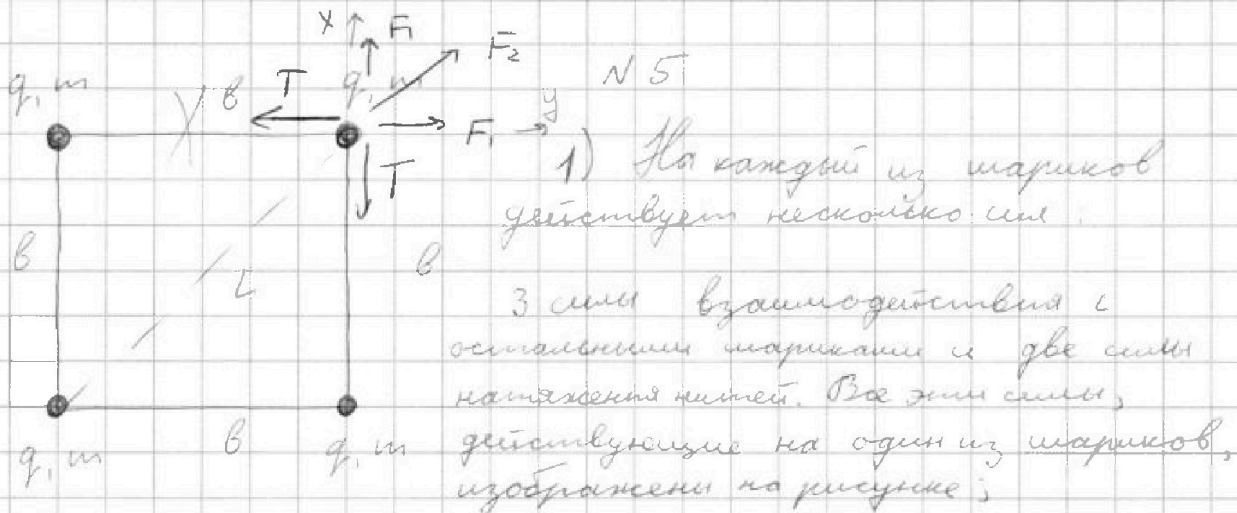 x F₁
F₂
q, m b T q, m N 5
F₁ y
1) На каждый из шариков
T
действует несколько сил.
b L b
3 силы взаимодействия с
остальными шариками и две силы
натяжения нитей. Все эти силы,
q, m b q, m действующие на один из шариков,
изображены на рисунке;